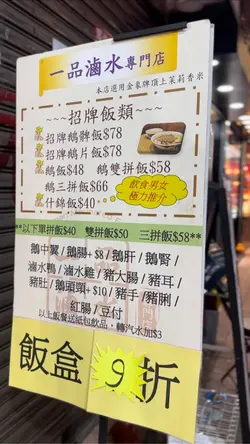 一品滷水專門店
本店選用金象牌頂上茉莉香米
~~~招牌飯類~~~
招牌鵝髀飯$78
招牌鵝片飯$78
鵝飯$48 鵝雙拼飯$58
鵝三拼飯$66
什錦飯$40
飲食男女
極力推介
**以下單拼飯$40 雙拼飯$50 三拼飯$58**
鵝中翼/鵝腸+$8/鵝肝/鵝腎/
滷水鴨/滷水雞/豬大腸/豬耳/
豬肚/鵝頭頸+$10/豬手/豬脷/
紅腸/豆付
以上飯餐送紙包飲品,轉汽水加$3
飯盒 9折